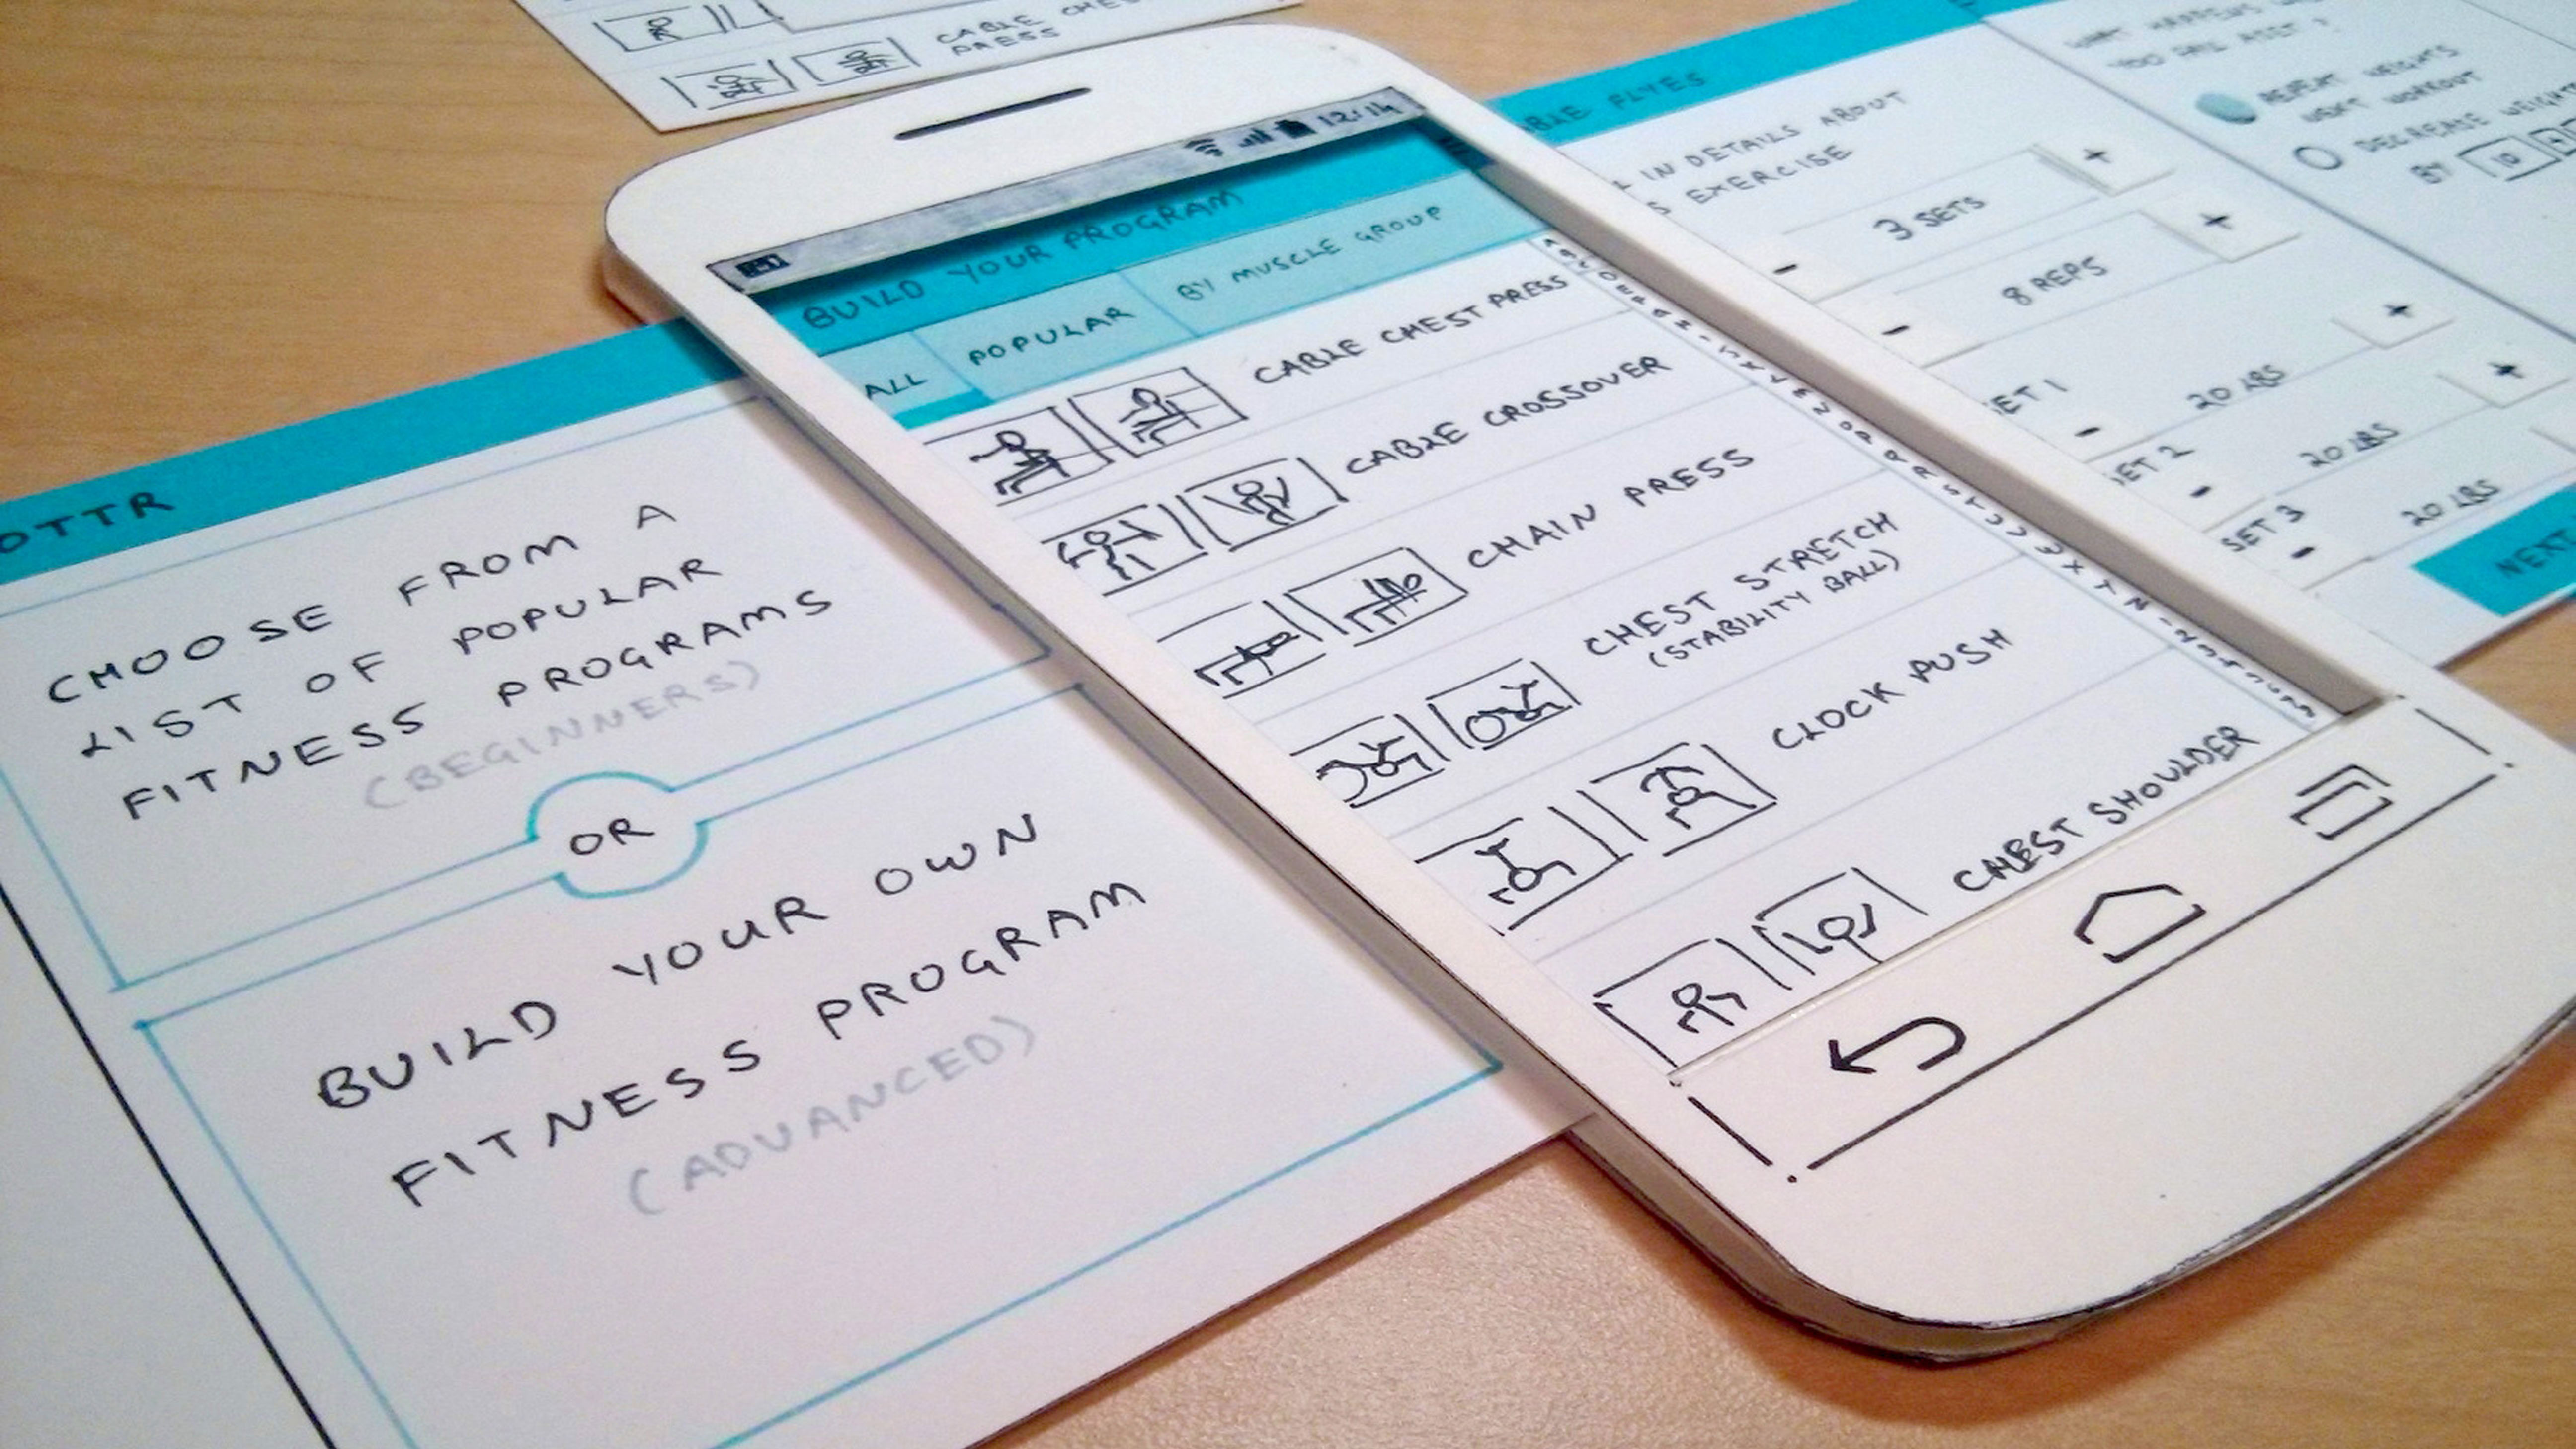 CABLE CHEST
PRESS
OTTR
CHOOSE FROM A
LIST OF POPULAR
FITNESS PROGRAMS
(BEGINNERS)
OR
BUILD YOUR OWN
FITNESS PROGRAM
(ADVANCED)
12:14
BUILD YOUR PROGRAM
ALL POPULAR BY MUSCLE GROUP
CABLE CHEST PRESS
CABLE CROSSOVER
CHAIN PRESS
CHEST STRETCH
(STABILITY BALL)
CLOCK PUSH
CHEST SHOULDER
BLE FLYES
L IN DETAILS ABOUT
S EXERCISE
- 3 SETS +
- 8 REPS +
SET 1 - 20 LBS +
SET 2 - 20 LBS +
SET 3 - 20 LBS
NEXT
WHAT HAPPENS
YOU FAIL
REPEAT WEIGHTS
NEXT WORKOUT
DECREASE WEIGHT
BY 10